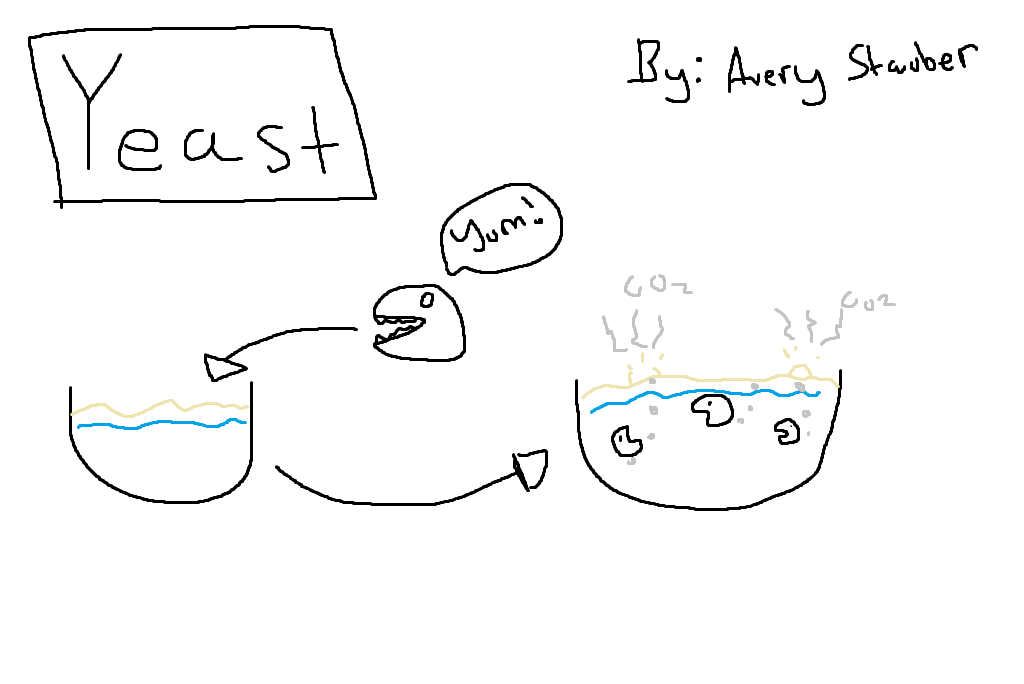 Yeast
By: Avery Stauber
Yum!
CO2
CO2